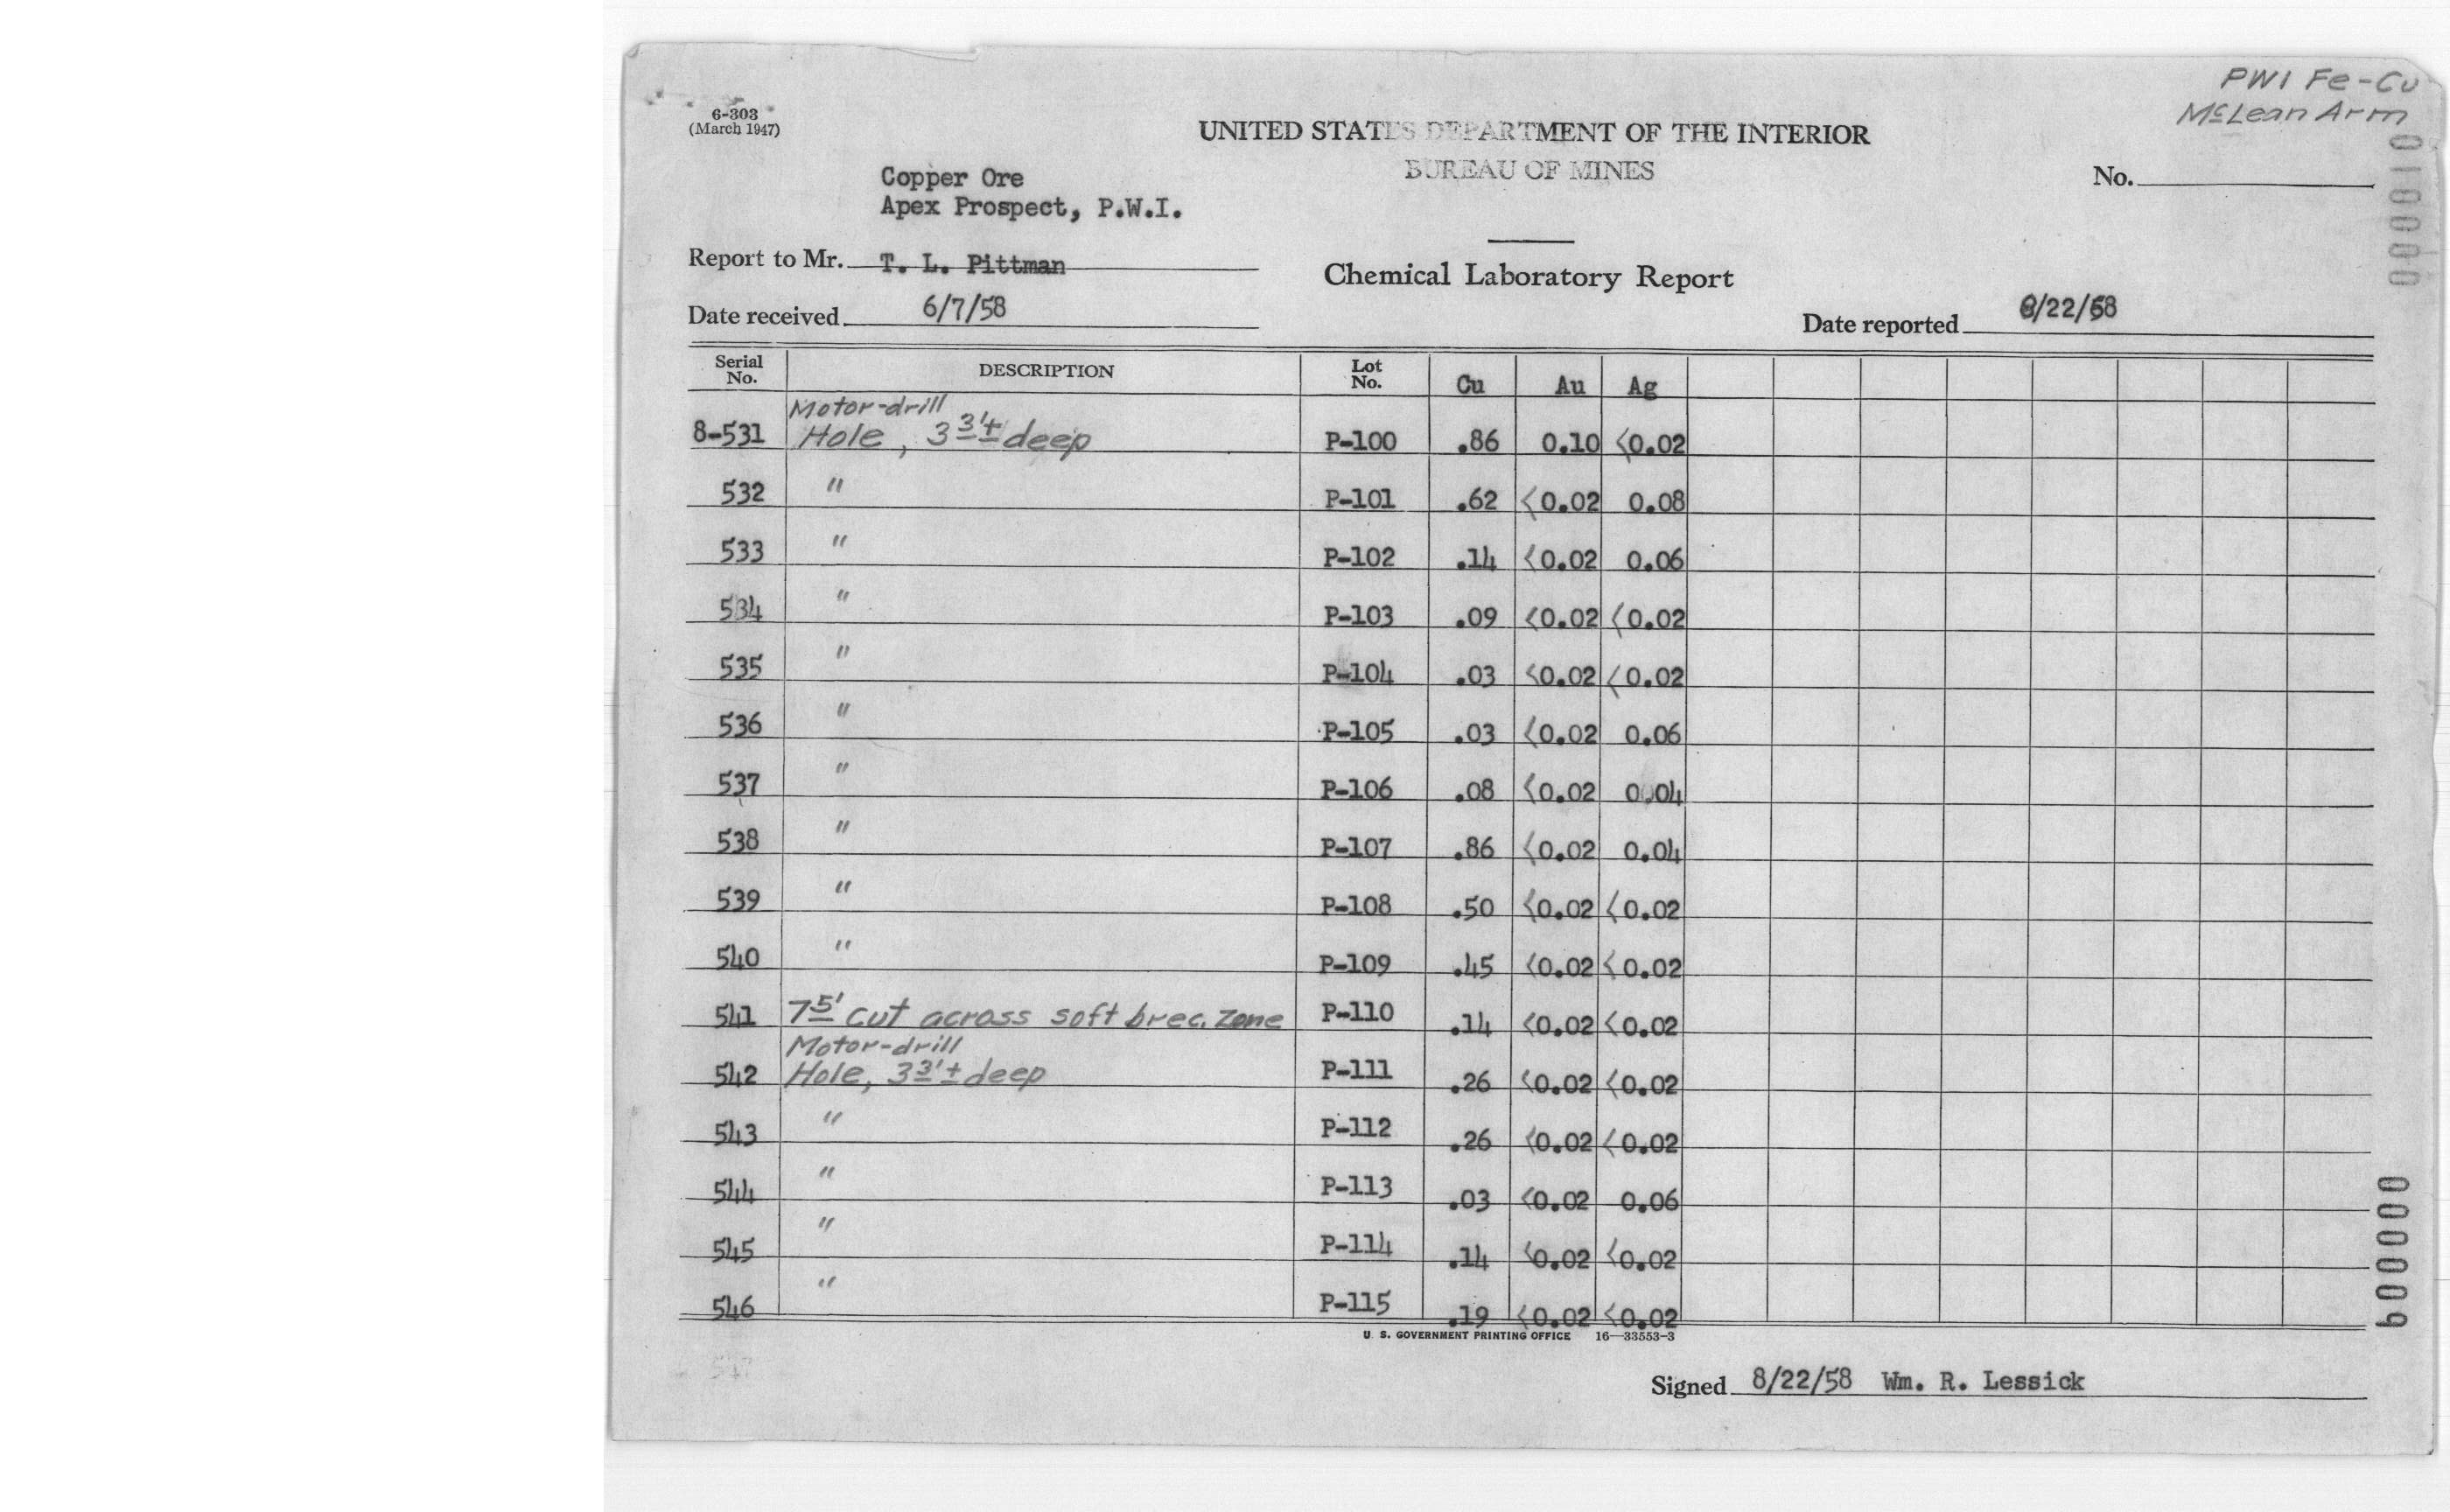 PWI Fe-Cu
McLean Arm
6-303
(March 1947)
UNITED STATES DEPARTMENT OF THE INTERIOR
BUREAU OF MINES
No.
000010
Copper Ore
Apex Prospect, P.W.I.
Report to Mr. T. L. Pittman
Chemical Laboratory Report
Date received 6/7/58
Date reported 8/22/58
Serial No. DESCRIPTION Lot No. Cu Au Ag
Motor-drill
8-531 Hole, 3 3'± deep P-100 .86 0.10 <0.02
532 " P-101 .62 <0.02 0.08
533 " P-102 .14 <0.02 0.06
534 " P-103 .09 <0.02 <0.02
535 " P-104 .03 <0.02 <0.02
536 " P-105 .03 <0.02 0.06
537 " P-106 .08 <0.02 0.04
538 " P-107 .86 <0.02 0.04
539 " P-108 .50 <0.02 <0.02
540 " P-109 .45 <0.02 <0.02
541 7 5' cut across soft brec. zone P-110 .14 <0.02 <0.02
Motor-drill
542 Hole, 3 3'± deep P-111 .26 <0.02 <0.02
543 " P-112 .26 <0.02 <0.02
544 " P-113 .03 <0.02 0.06
545 " P-114 .14 <0.02 <0.02
546 " P-115 .19 <0.02 <0.02
U. S. GOVERNMENT PRINTING OFFICE 16—33553-3
000009
Signed 8/22/58 Wm. R. Lessick